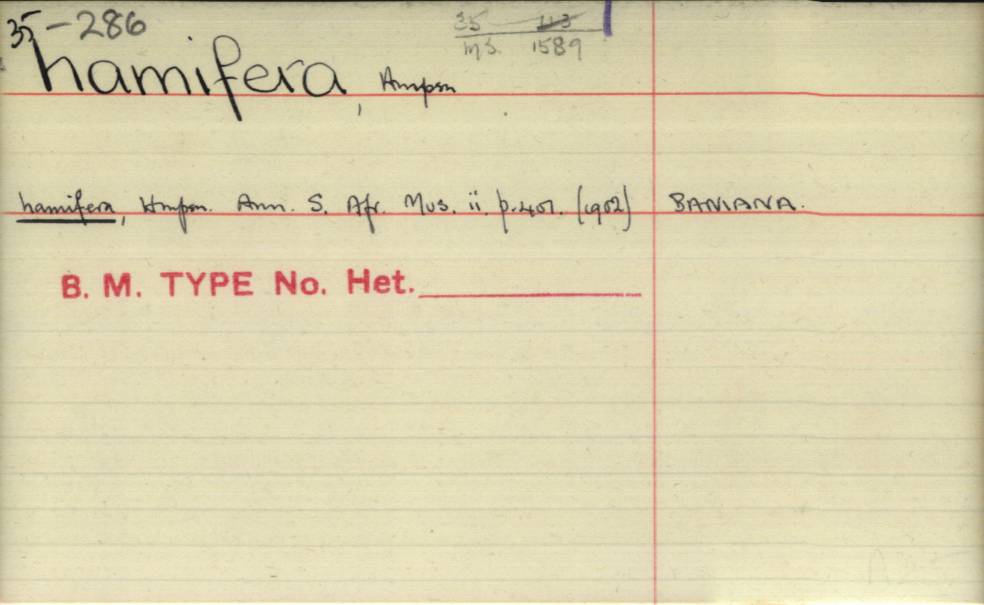 35-286
35 113
MS. 1589
hamifera, Hmpsn
hamifera, Hmpsn. Ann. S. Afr. Mus. ii. p. (1902) BANIANA.
B. M. TYPE No. Het.